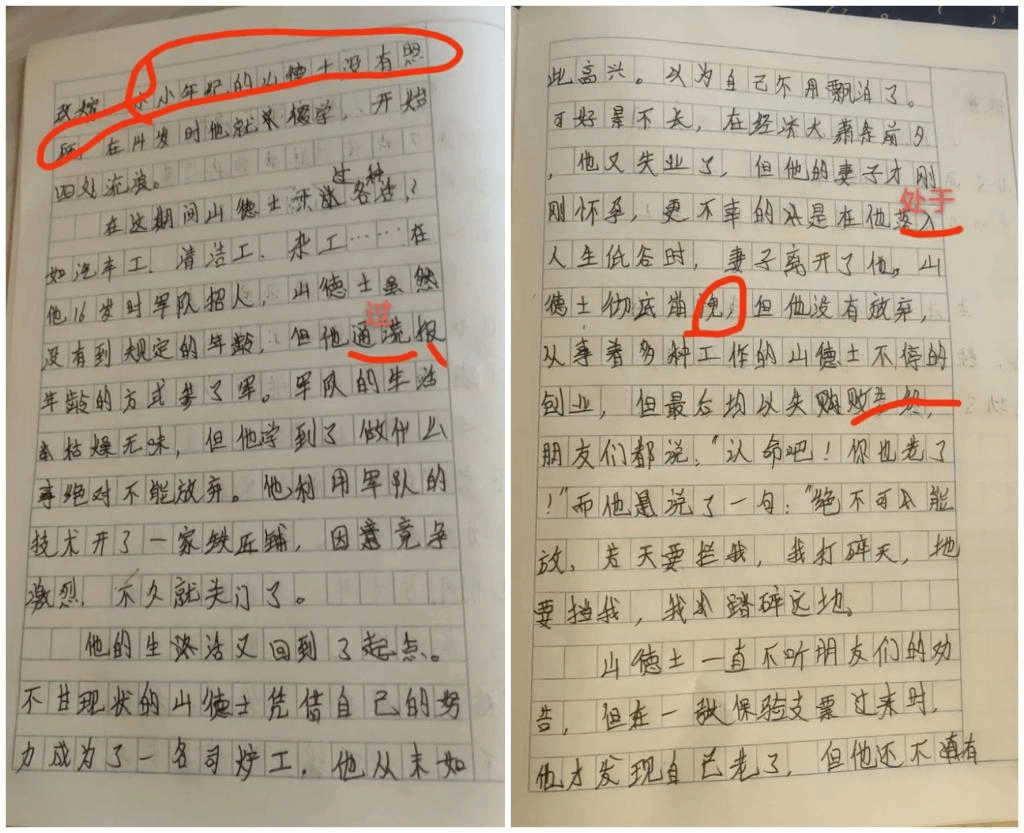 改嫁。小小年纪的山德士没有照
所，在14岁时他就辍学，开始
四处流浪。
过种
在这期间山德士干各活，
如汽车工、清洁工、杂工……在
他16岁时军队招人，山德士虽然
过
没有到规定的年龄，但他通谎报
年龄的方式参了军。军队的生活
枯燥无味，但他学到了做什么
事绝对不能放弃。他利用军队的
技术开了一家铁匠铺，因意竞争
激烈，不久就关门了。
他的生活又回到了起点。
不甘现状的山德士凭借自己的努
力成为了一名司炉工，他从未如
此高兴。以为自己不用飘泊了。
可好景不长，在经济大萧条前夕
，他又失业了，但他的妻子才刚
处于
刚怀孕，更不幸的是在他落入
人生低谷时，妻子离开了他。山
德士彻底崩，但他没有放弃，
从事着多种工作的山德士不停的
创业，但最后均以失败告终，
朋友们都说："认命吧！你也老了
！"而他是说了一句："绝不可能
放、若天要拦我，我打碎天，地
要挡我，我踏碎这地。
山德士一直不听朋友们的劝
告，但在一张保险支票过来时，
他才发现自己老了，但他还不有